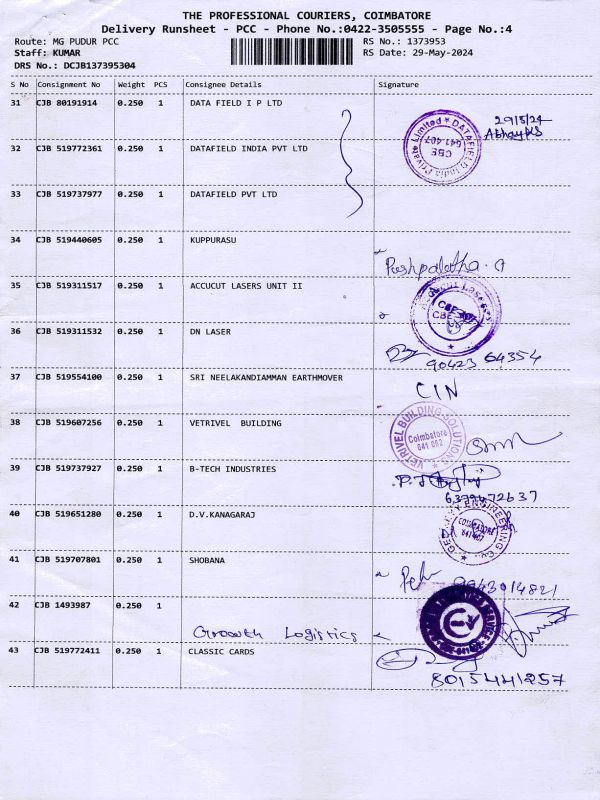 THE PROFESSIONAL COURIERS, COIMBATORE
Delivery Runsheet - PCC - Phone No.:0422-3505555 - Page No.:4
Route: MG PUDUR PCC RS No.: 1373953
Staff: KUMAR RS Date: 29-May-2024
DRS No.: DCJB137395304
S No Consignment No Weight PCS Consignee Details Signature
31 CJB 80191914 0.250 1 DATA FIELD I P LTD
29/5/24
32 CJB 519772361 0.250 1 DATAFIELD INDIA PVT LTD
DATAFIELD India Private Limited
CBE
641.407
33 CJB 519737977 0.250 1 DATAFIELD PVT LTD
34 CJB 519440605 0.250 1 KUPPURASU
Pushpalatha. G
35 CJB 519311517 0.250 1 ACCUCUT LASERS UNIT II
36 CJB 519311532 0.250 1 DN LASER
90423 64354
37 CJB 519554100 0.250 1 SRI NEELAKANDIAMMAN EARTHMOVER
CIN
38 CJB 519607256 0.250 1 VETRIVEL BUILDING
VETRIVEL BUILDING SOLUTIONS
Coimbatore
641 062
39 CJB 519737927 0.250 1 B-TECH INDUSTRIES
6379472637
40 CJB 519651280 0.250 1 D.V.KANAGARAJ
COIMBATORE
41 CJB 519707801 0.250 1 SHOBANA
9943014821
42 CJB 1493987 0.250 1
Growth Logistics
43 CJB 519772411 0.250 1 CLASSIC CARDS
8015441257